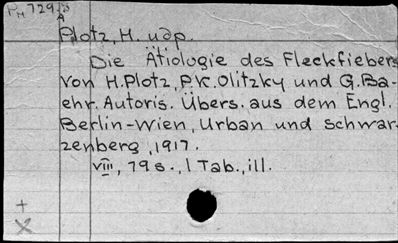 Plotz, H. u dp.
Die Ätiologie des Fleckfiebers
von H. Plotz, P.K. Olitzky und G. Ba-
ehr. Autoris. Übers. aus dem Engl.
Berlin-Wien, Urban und Schwar-
zenberg, 1917.
VIII, 79 s., 1 Tab., ill.